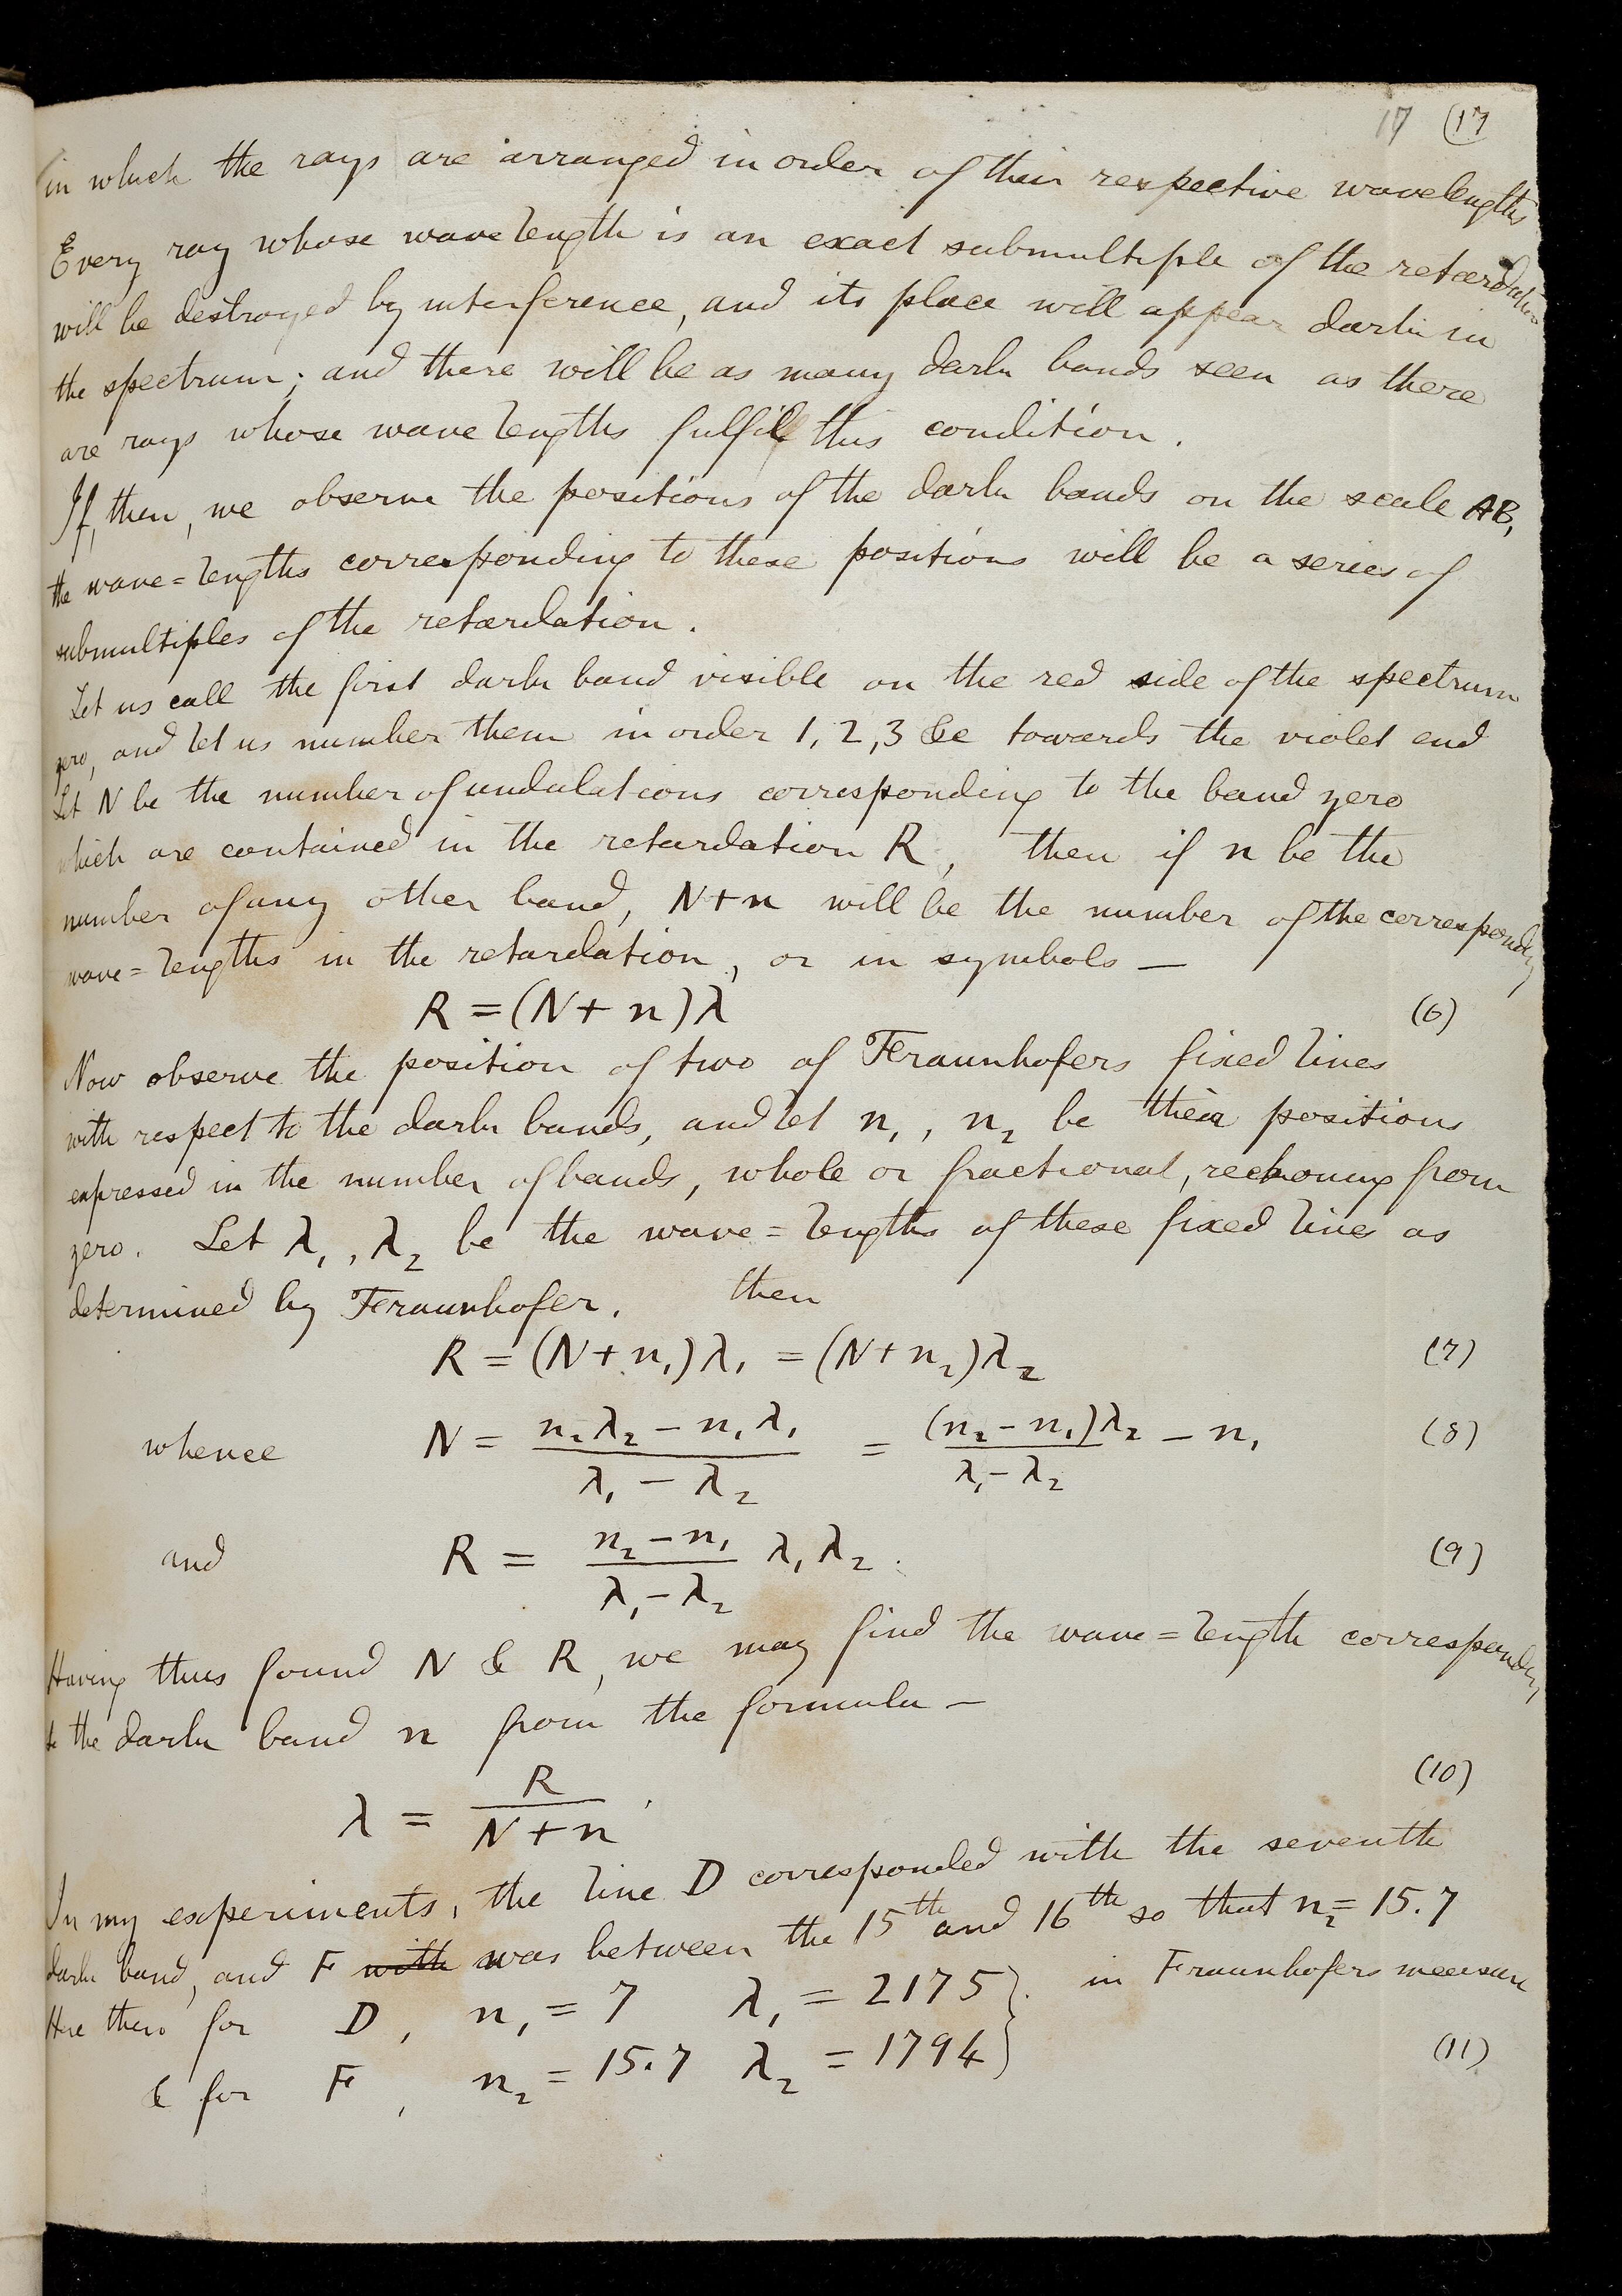 17 (17
in which the rays are arranged in order of their respective wavelengths
Every ray whose wave length is an exact submultiple of the retardation
will be destroyed by interference, and its place will appear dark in
the spectrum; and there will be as many dark bands seen as there
are rays whose wave lengths fulfill this condition.
If, then, we observe the positions of the dark bands on the scale AB,
the wave=lengths corresponding to these positions will be a series of
submultiples of the retardation.
Let us call the first dark band visible on the red side of the spectrum
zero, and let us number them in order 1, 2, 3 &c towards the violet end
Let N be the number of undulations corresponding to the band zero
which are contained in the retardation R, then if n be the
number of any other band, N+n will be the number of the corresponding
wave=lengths in the retardation, or in symbols —
R = (N + n) λ (6)
Now observe the position of two of Fraunhofers fixed lines
with respect to the dark bands, and let n₁, n₂ be their positions
expressed in the number of bands, whole or fractional, reckoning from
zero. Let λ₁, λ₂ be the wave=lengths of these fixed lines as
determined by Fraunhofer. then
R = (N+n₁)λ₁ = (N+n₂)λ₂ (7)
whence N = (n₂λ₂ − n₁λ₁)/(λ₁ − λ₂) = (n₂−n₁)λ₂/(λ₁−λ₂) − n₁ (8)
and R = (n₂−n₁)/(λ₁−λ₂) λ₁λ₂. (9)
Having thus found N & R, we may find the wave=length corresponding
to the dark band n from the formula —
λ = R/(N+n). (10)
In my experiments, the line D corresponded with the seventh
dark band, and F with was between the 15th and 16th so that n₂ = 15.7
Here then for D, n₁ = 7 λ₁ = 2175 }. in Fraunhofers measure
& for F, n₂ = 15.7 λ₂ = 1794 (11)